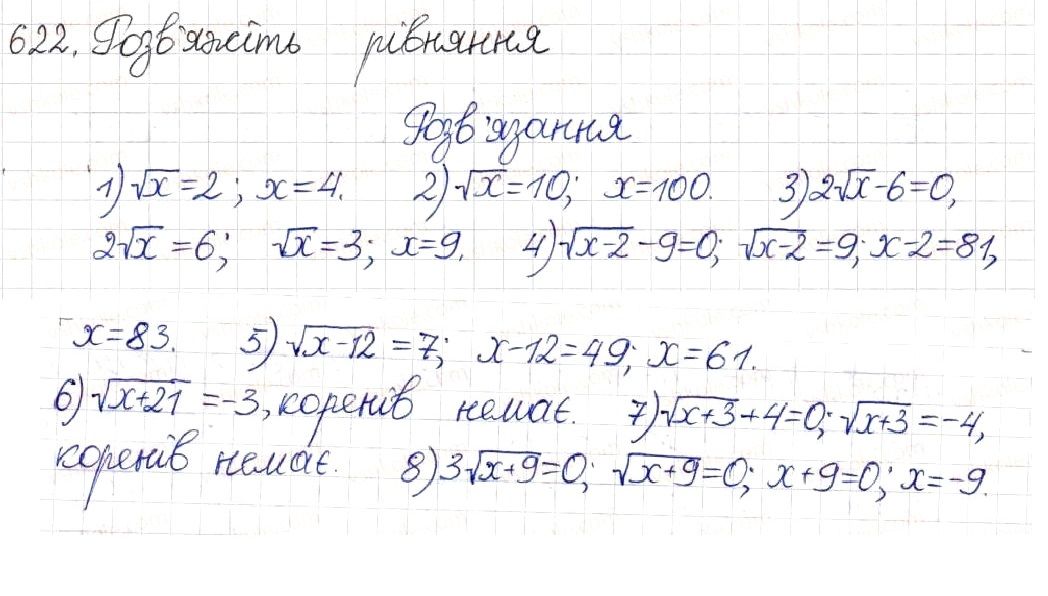 622. Розв'яжіть рівняння
Розв'язання
1) √x = 2; x = 4. 2) √x = 10; x = 100. 3) 2√x - 6 = 0,
2√x = 6; √x = 3; x = 9. 4) √(x-2) - 9 = 0; √(x-2) = 9; x - 2 = 81,
x = 83. 5) √(x-12) = 7; x - 12 = 49; x = 61.
6) √(x+21) = -3, коренів немає. 7) √(x+3) + 4 = 0; √(x+3) = -4,
коренів немає. 8) 3√(x+9) = 0; √(x+9) = 0; x + 9 = 0; x = -9.